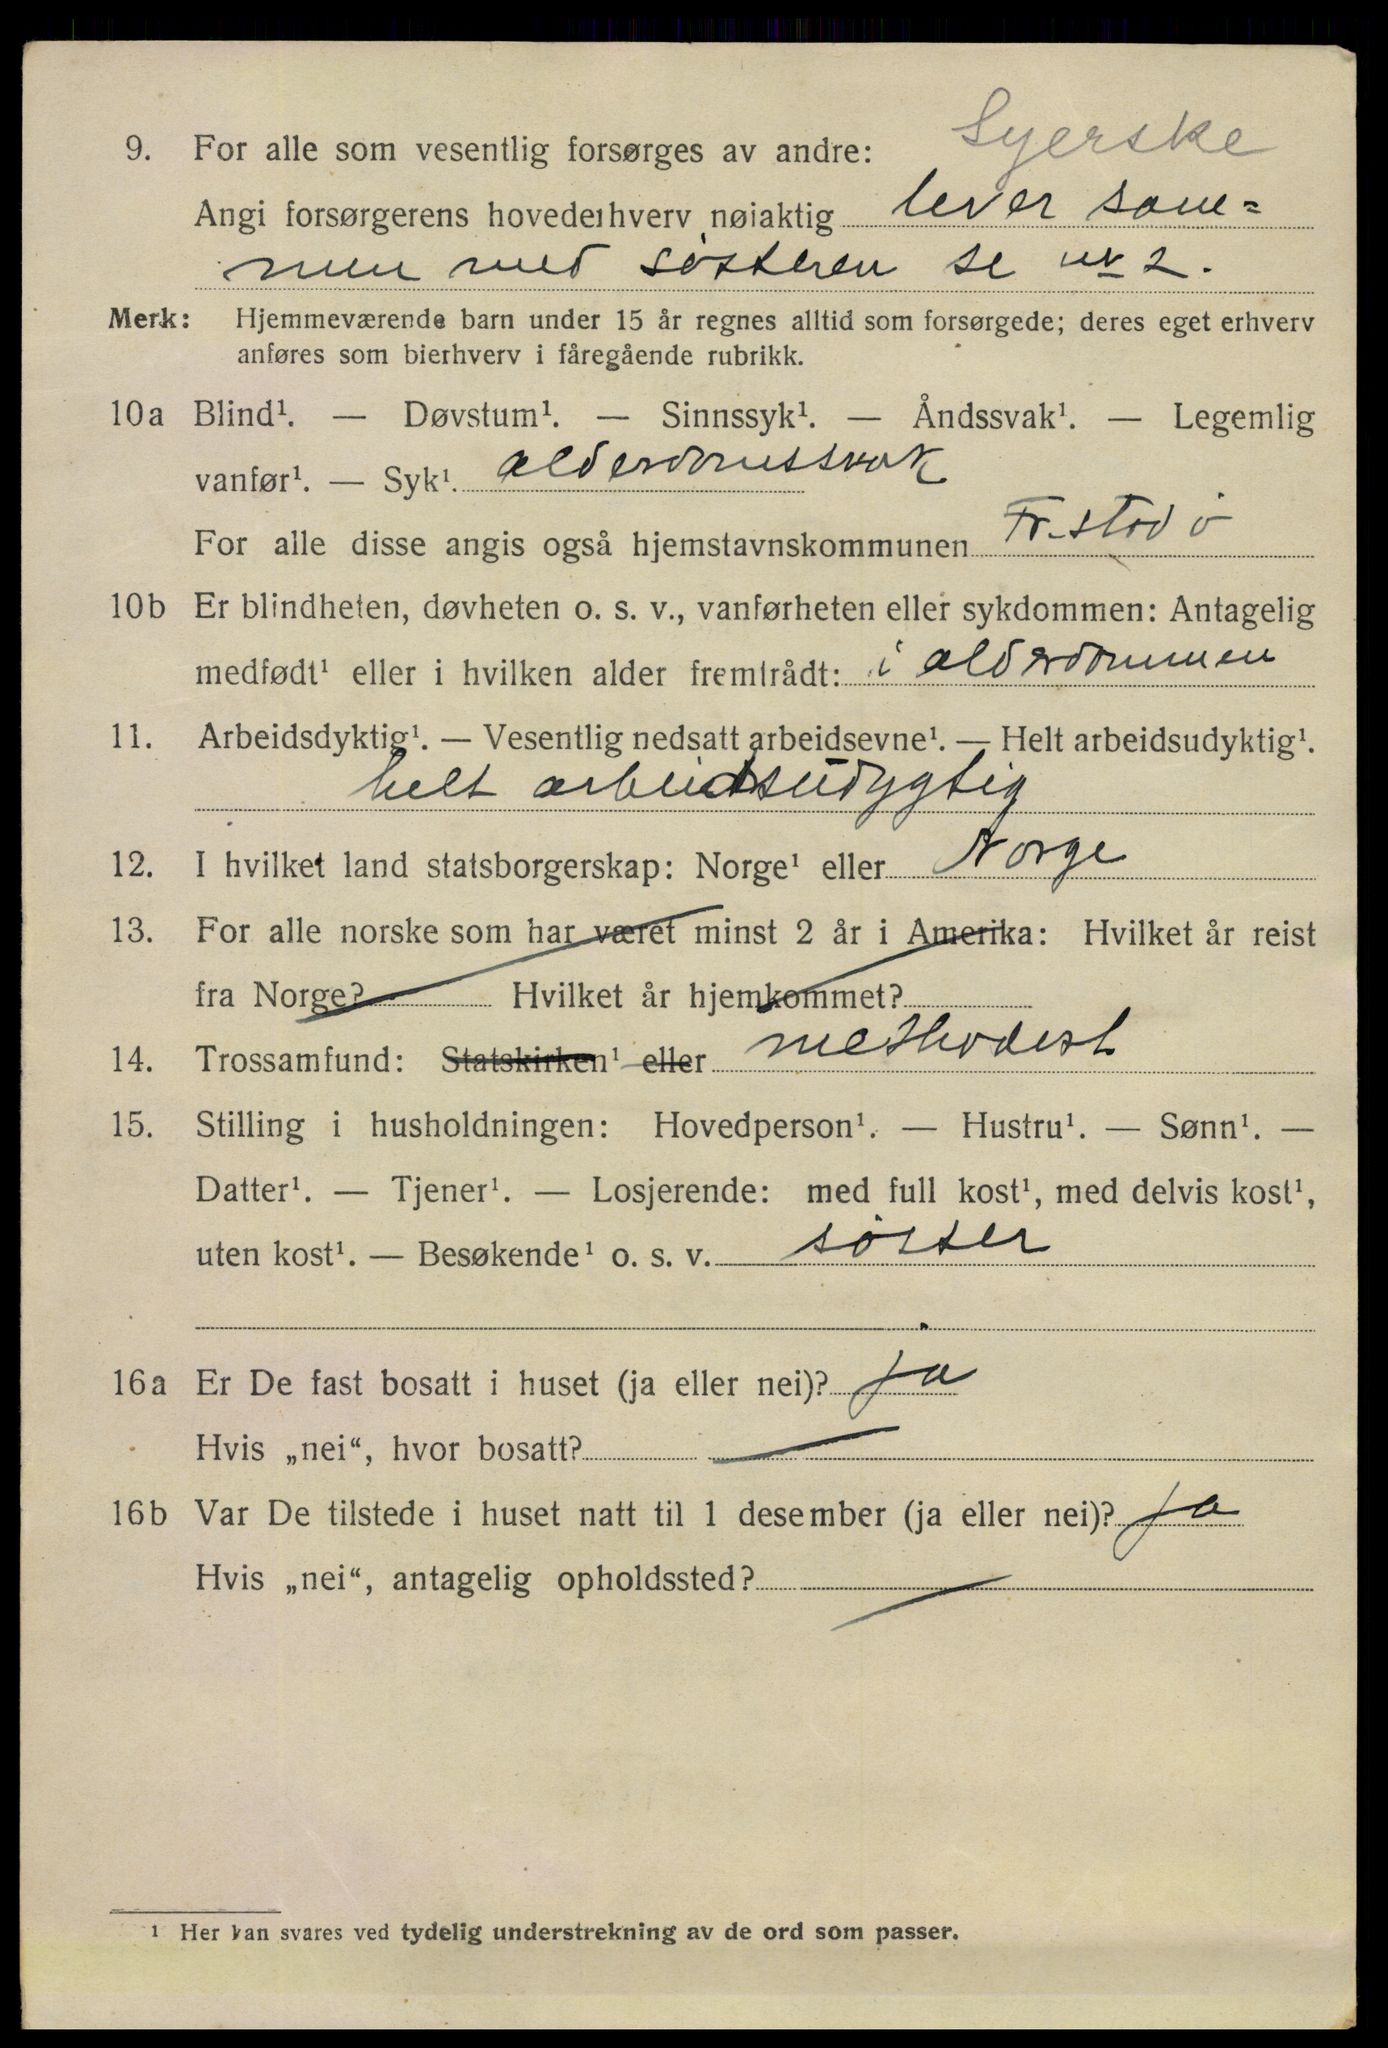 Syerske
9. For alle som vesentlig forsørges av andre:
Angi forsørgerens hovederhverv nøiaktig lever sam=
men med søsteren se nr 2.
Merk: Hjemmeværende barn under 15 år regnes alltid som forsørgede; deres eget erhverv
anføres som bierhverv i fåregående rubrikk.
10a Blind¹. — Døvstum¹. — Sinnssyk¹. — Åndssvak¹. — Legemlig
vanfør¹. — Syk¹. alderdomssvak
For alle disse angis også hjemstavnskommunen Fr.stad
10b Er blindheten, døvheten o. s. v., vanførheten eller sykdommen: Antagelig
medfødt¹ eller i hvilken alder fremtrådt: i alderdommen
11. Arbeidsdyktig¹. — Vesentlig nedsatt arbeidsevne¹. — Helt arbeidsudyktig¹.
helt arbeidsudygtig
12. I hvilket land statsborgerskap: Norge¹ eller Norge
13. For alle norske som har været minst 2 år i Amerika: Hvilket år reist
fra Norge? Hvilket år hjemkommet?
14. Trossamfund: Statskirken¹ eller methodist
15. Stilling i husholdningen: Hovedperson¹. — Hustru¹. — Sønn¹. —
Datter¹. — Tjener¹. — Losjerende: med full kost¹, med delvis kost¹,
uten kost¹. — Besøkende¹ o. s. v. søster
16a Er De fast bosatt i huset (ja eller nei)? ja
Hvis „nei“, hvor bosatt?
16b Var De tilstede i huset natt til 1 desember (ja eller nei)? ja
Hvis „nei“, antagelig opholdssted?
¹ Her kan svares ved tydelig understrekning av de ord som passer.